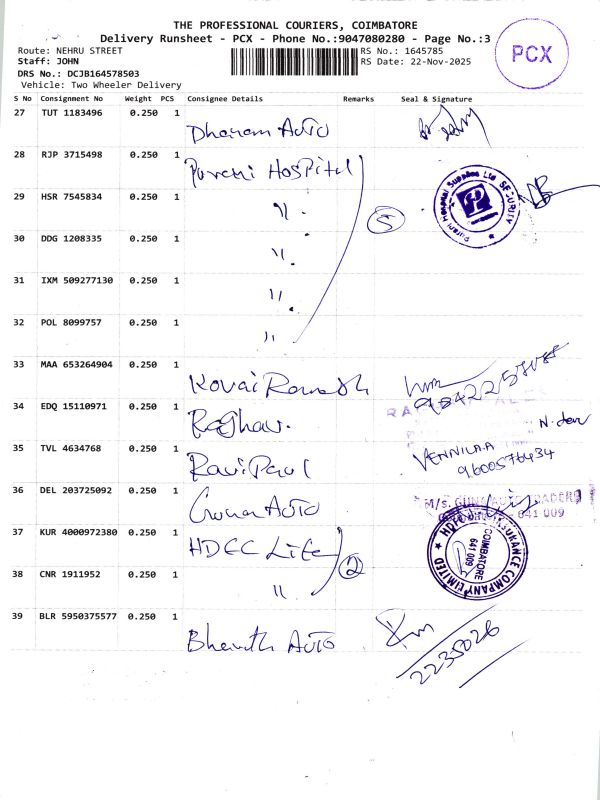 THE PROFESSIONAL COURIERS, COIMBATORE
Delivery Runsheet - PCX - Phone No.:9047080280 - Page No.:3
Route: NEHRU STREET
RS No.: 1645785
PCX
Staff: JOHN
RS Date: 22-Nov-2025
DRS No.: DCJB164578503
Vehicle: Two Wheeler Delivery
S No Consignment No Weight PCS Consignee Details Remarks Seal & Signature
27 TUT 1183496 0.250 1
Dhanam Auto
28 RJP 3715498 0.250 1 Purani Hospital
29 HSR 7545834 0.250 1 "
5
Purani Hospital Supplies Ltd SECURITY
30 DDG 1208335 0.250 1 "
31 IXM 509277130 0.250 1 "
32 POL 8099757 0.250 1 "
33 MAA 653264904 0.250 1
Kovai Ramesh
34 EDQ 15110971 0.250 1
Raghav.
35 TVL 4634768 0.250 1
Ravi Paul
VENNILAA
9600576434
36 DEL 203725092 0.250 1
Auto
M/s.
641 009
37 KUR 4000972380 0.250 1
HDFC Life
2
HDFC INSURANCE COMPANY LIMITED
COIMBATORE
641 009
38 CNR 1911952 0.250 1 "
39 BLR 5950375577 0.250 1
Bharath Auto
2235026